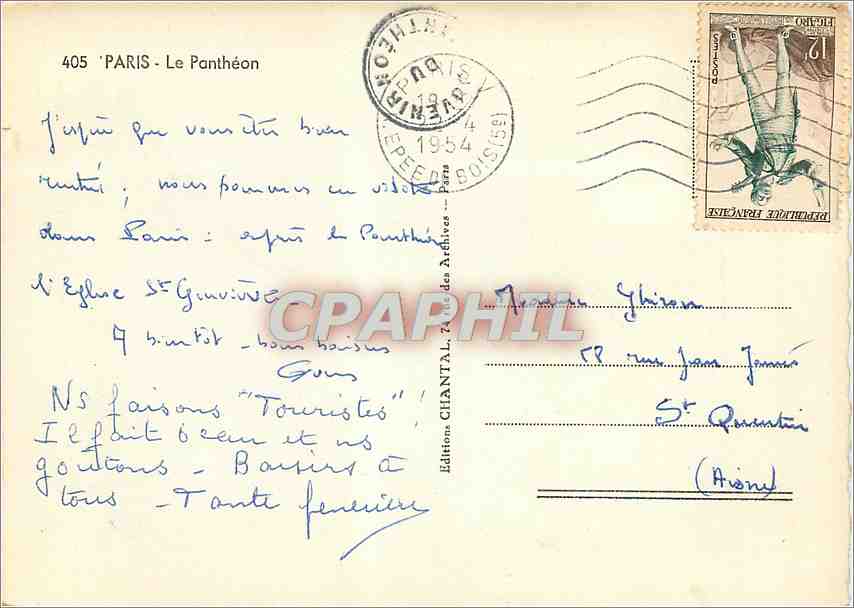 405 PARIS - Le Panthéon
J'espère que vous êtes bien
rentré ; nous sommes en visite
dans Paris : après le Panthéon
l'Eglise St Geneviève
A bientôt - bons baisers
Ns faisons "Touristes" !
Il fait beau et ns
goûtons - Baisers à
tous - Tante
Editions CHANTAL, 74 rue des Archives - Paris
SOUVENIR DU PANTHÉON
PARIS
4
1954
R. DE L'EPEE DE BOIS (5e)
12F
FIGARO
POSTES
RÉPUBLIQUE FRANÇAISE
Madame Ghiron
58 rue Jean Jaurès
St Quentin
(Aisne)
CPAPHIL